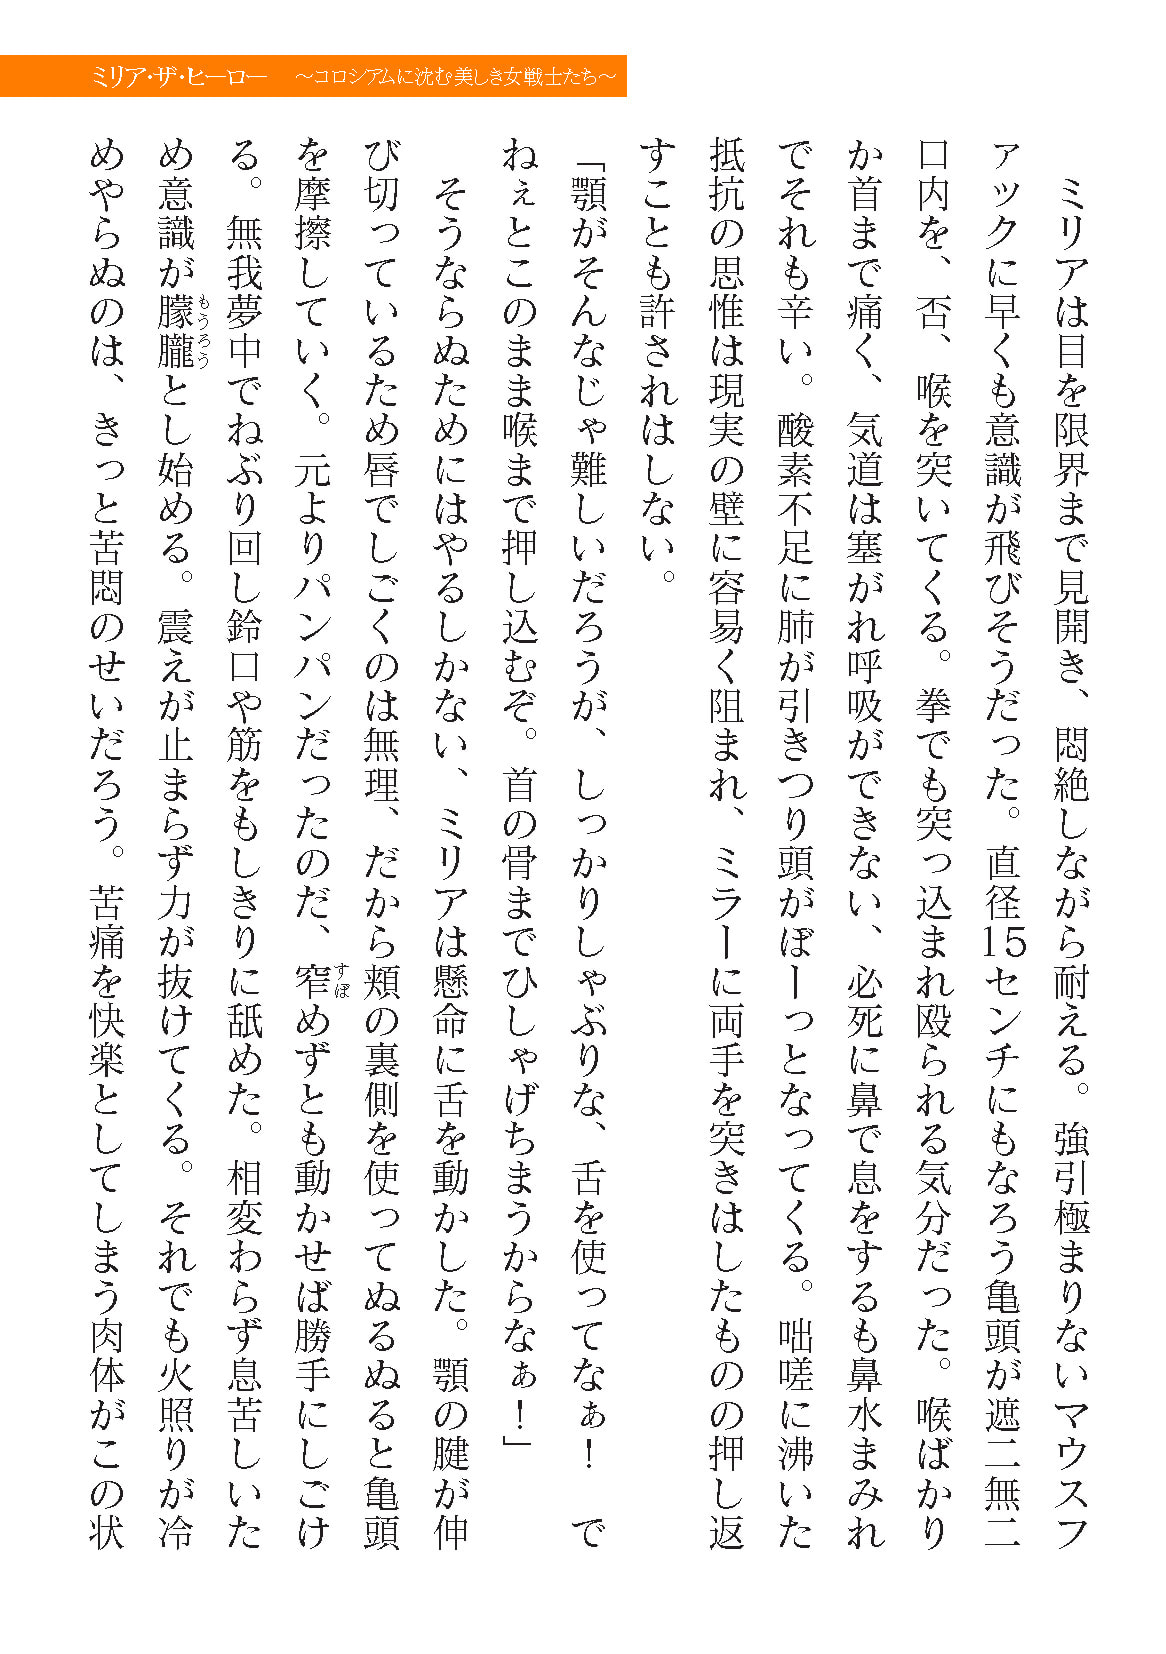 ミリア・ザ・ヒーロー　～コロシアムに沈む美しき女戦士たち～
　ミリアは目を限界まで見開き、悶絶しながら耐える。強引極まりないマウスフ
ァックに早くも意識が飛びそうだった。直径15センチにもなろう亀頭が遮二無二
口内を、否、喉を突いてくる。拳でも突っ込まれ殴られる気分だった。喉ばかり
か首まで痛く、気道は塞がれ呼吸ができない、必死に鼻で息をするも鼻水まみれ
でそれも辛い。酸素不足に肺が引きつり頭がぼーっとなってくる。咄嗟に沸いた
抵抗の思惟は現実の壁に容易く阻まれ、ミラーに両手を突きはしたものの押し返
すことも許されはしない。
「顎がそんなじゃ難しいだろうが、しっかりしゃぶりな、舌を使ってなぁ！　で
ねぇとこのまま喉まで押し込むぞ。首の骨までひしゃげちまうからなぁ！」
　そうならぬためにはやるしかない、ミリアは懸命に舌を動かした。顎の腱が伸
び切っているため唇でしごくのは無理、だから頬の裏側を使ってぬるぬると亀頭
を摩擦していく。元よりパンパンだったのだ、窄めずとも動かせば勝手にしごけ
る。無我夢中でねぶり回し鈴口や筋をもしきりに舐めた。相変わらず息苦しいた
め意識が朦朧とし始める。震えが止まらず力が抜けてくる。それでも火照りが冷
めやらぬのは、きっと苦悶のせいだろう。苦痛を快楽としてしまう肉体がこの状